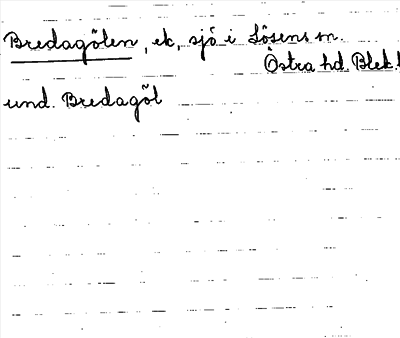 Bredagölen, ek, sjö i Lösens sn.
Östra hd. Blek.l
und. Bredagöl